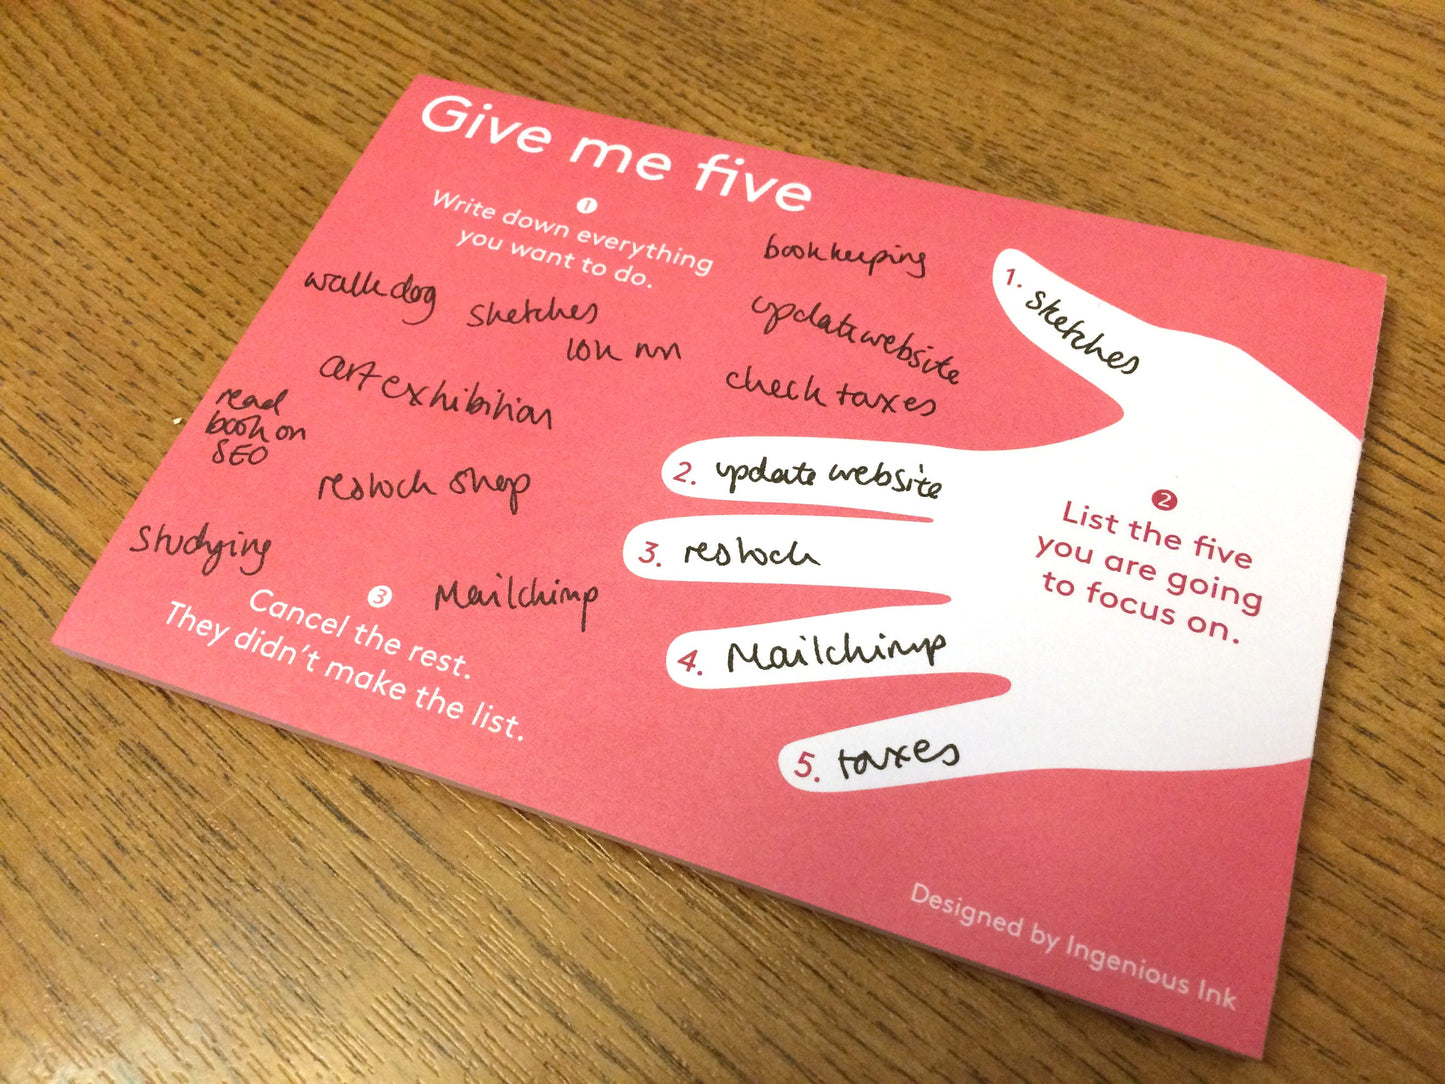 Give me five
1
Write down everything
you want to do.
bookkeeping
walk dog
sketches
update website
10k run
art exhibition
check taxes
read
book on
SEO
restock shop
studying
Mailchimp
3
Cancel the rest.
They didn't make the list.
1. sketches
2. update website
3. restock
4. Mailchimp
5. taxes
2
List the five
you are going
to focus on.
Designed by Ingenious Ink